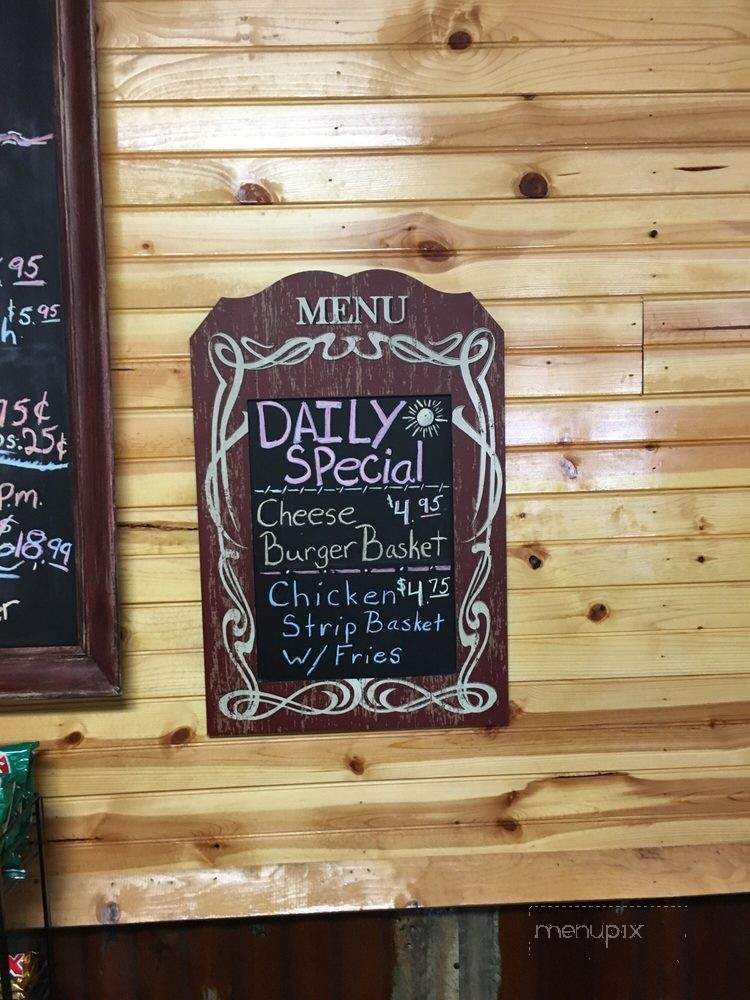 95
$5.95
h
75¢
25¢
P.m.
18.99
er
MENU
DAILY
SPecial
Cheese $4.95
Burger Basket
Chicken $4.75
Strip Basket
w/ Fries
menupix